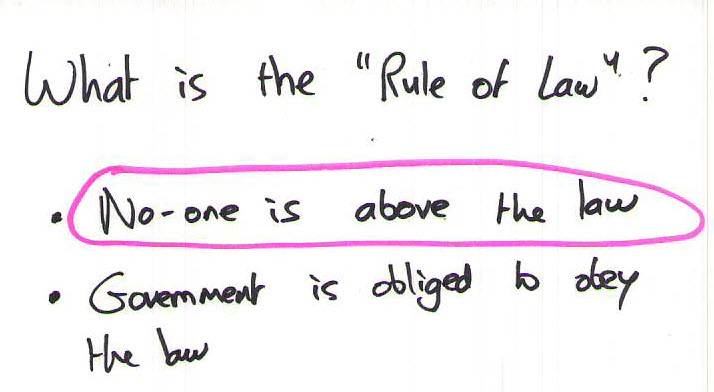 What is the "Rule of Law"?
• No-one is above the law
• Government is obliged to obey
the law